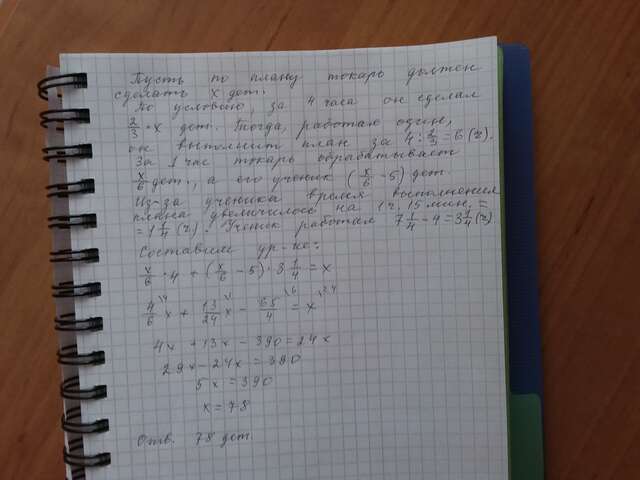 Пусть по плану токарь должен
сделать x дет.
По условию, за 4 часа он сделал
2/3 · x дет. Тогда, работая один,
он выполнит план за 4 : 2/3 = 6 (ч).
За 1 час токарь обрабатывает
x/6 дет., а его ученик (x/6 - 5) дет.
Из-за ученика время выполнения
плана увеличилось на 1 ч. 15 мин. =
= 1 1/4 (ч). Ученик работал 7 1/4 - 4 = 3 1/4 (ч)
Составим ур-ие:
x/6 · 4 + (x/6 - 5) · 3 1/4 = x
4/6 x + 13/24 x - 65/4 = x
4x + 13x - 390 = 24x
29x - 24x = 390
5x = 390
x = 78
Отв. 78 дет.